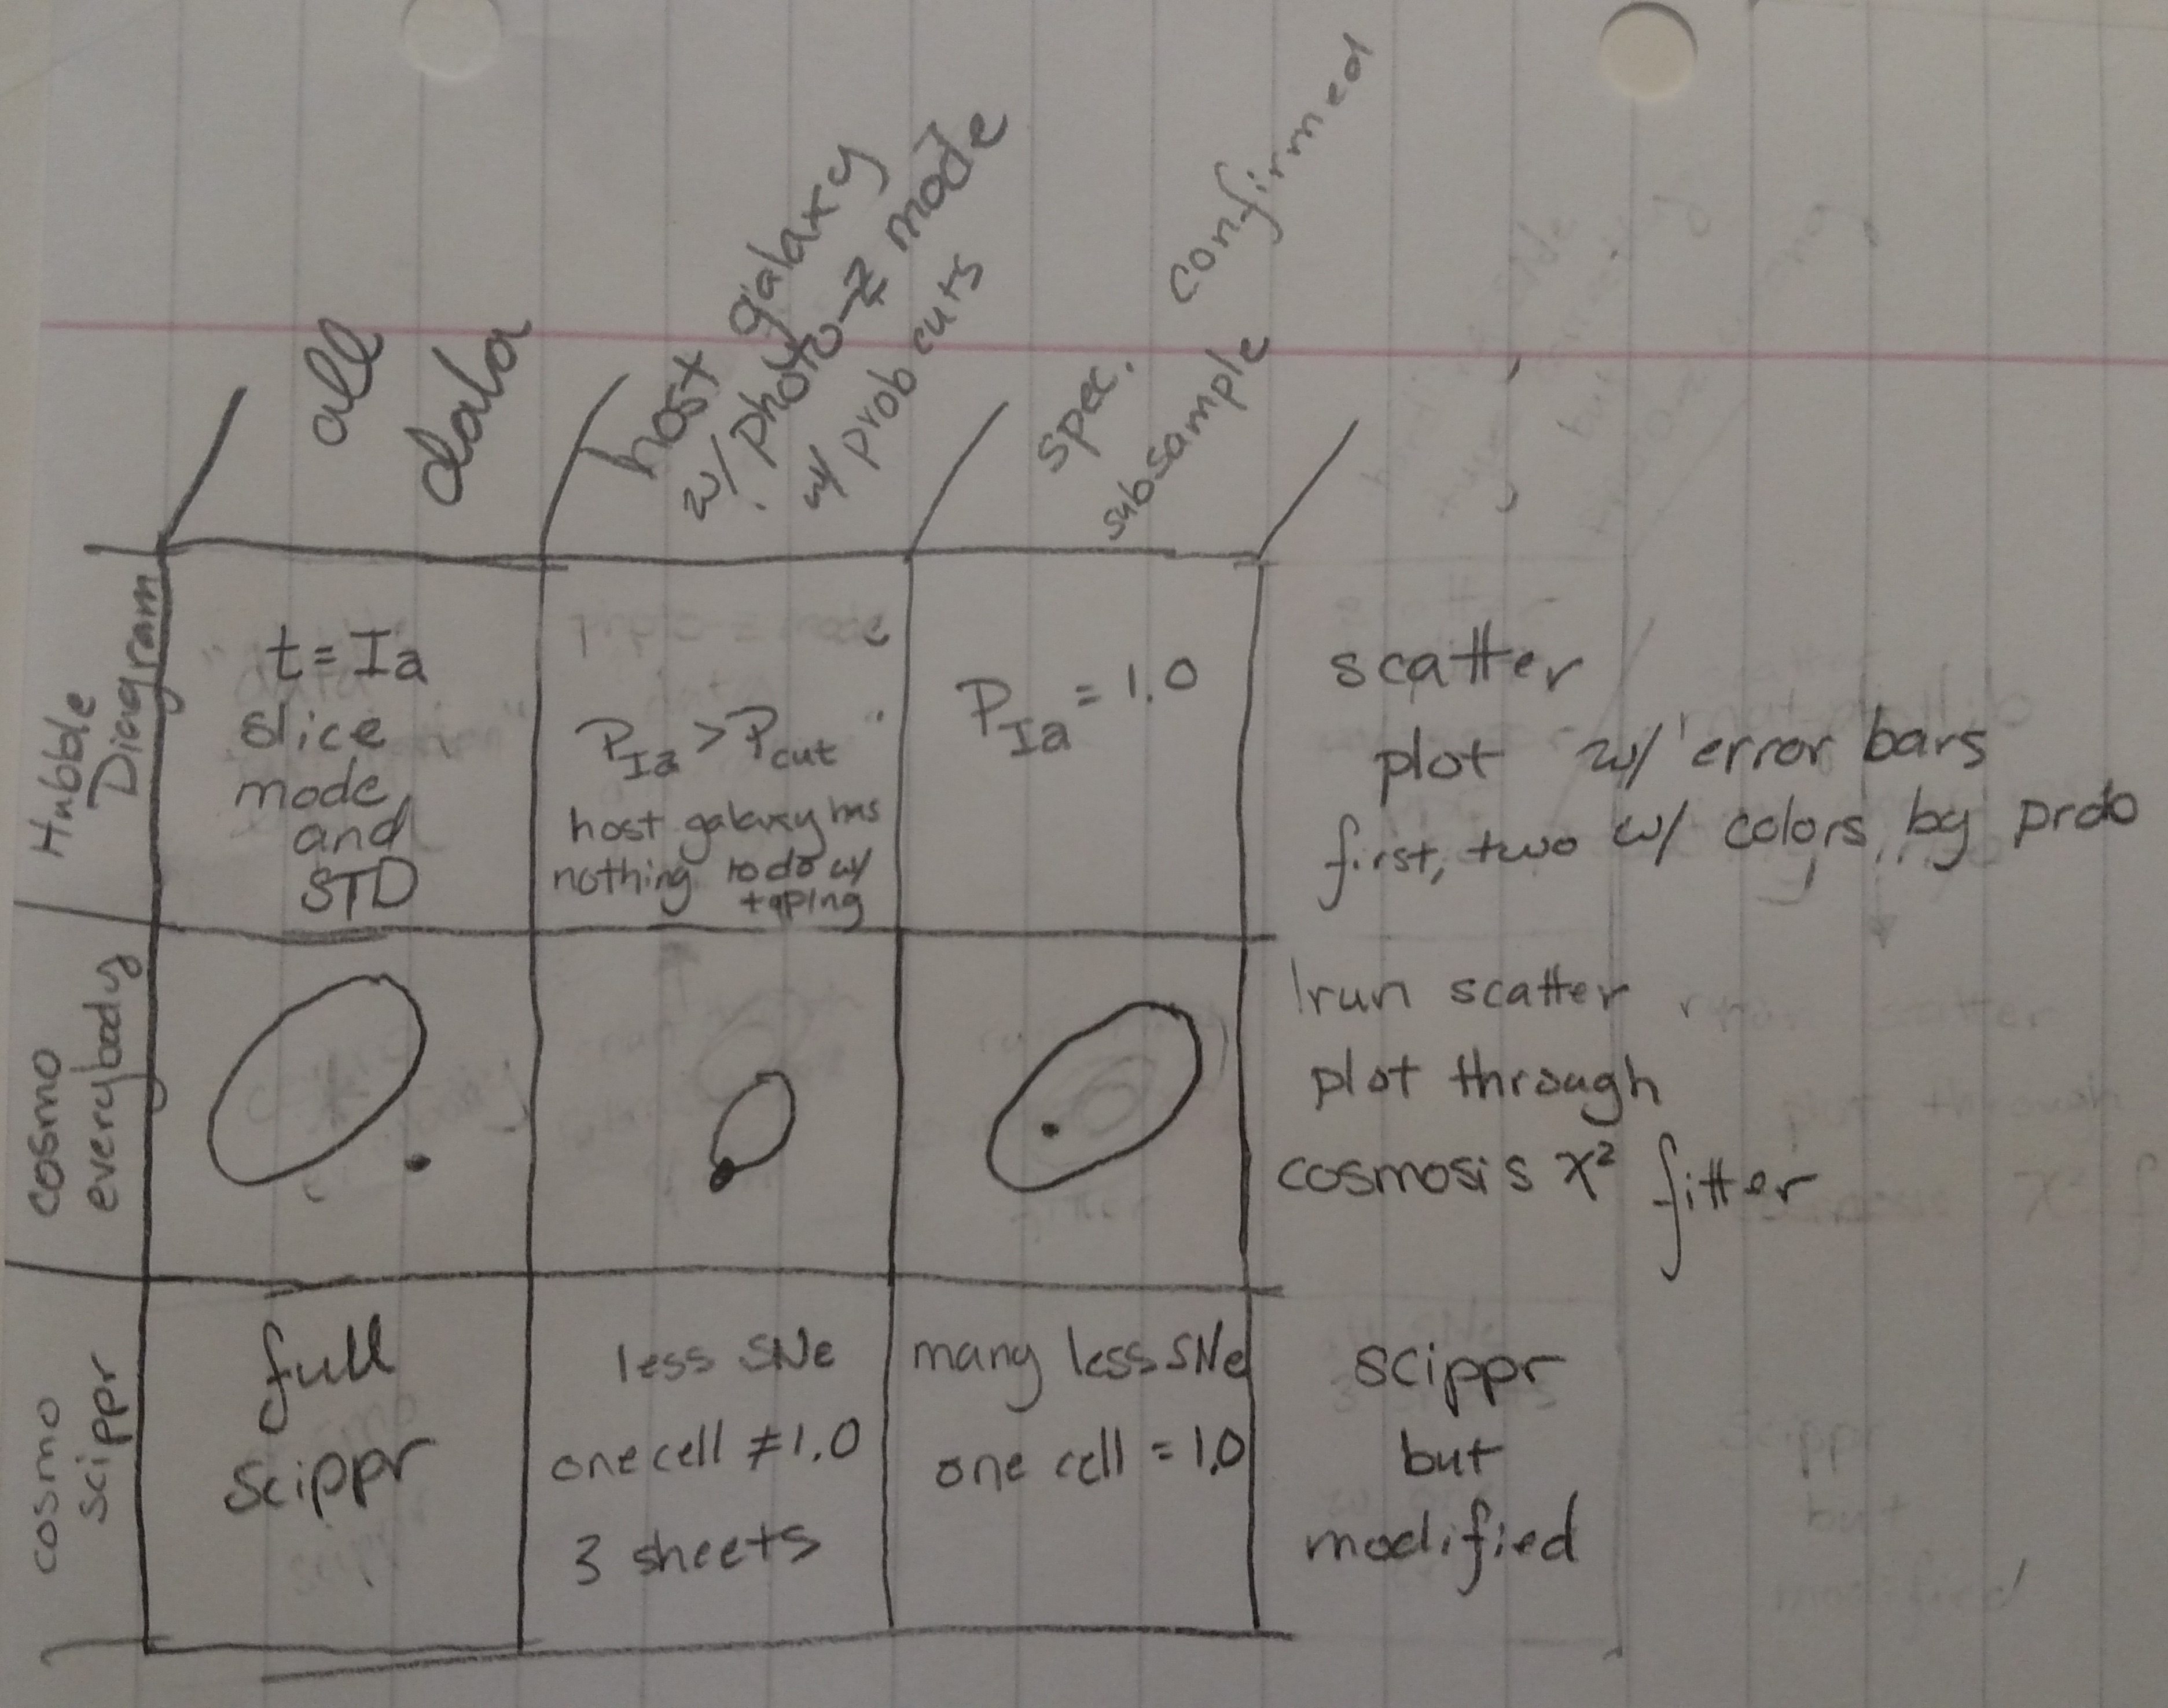 all
data
host galaxy
w/ photo-z mode
w/ prob cuts
spec. confirmed
subsample
Hubble
Diagram
t = Ia
slice
mode
and
STD
P_Ia > P_cut
host galaxy has
nothing to do w/
P_Ia = 1.0
scatter
plot w/ error bars
first, two w/ colors by prob
cosmo
everybody
run scatter
plot through
cosmosis χ² fitter
cosmo
scippr
full
scippr
less SNe
one cell ≠ 1.0
3 sheets
many less SNe
one cell = 1.0
scippr
but
modified